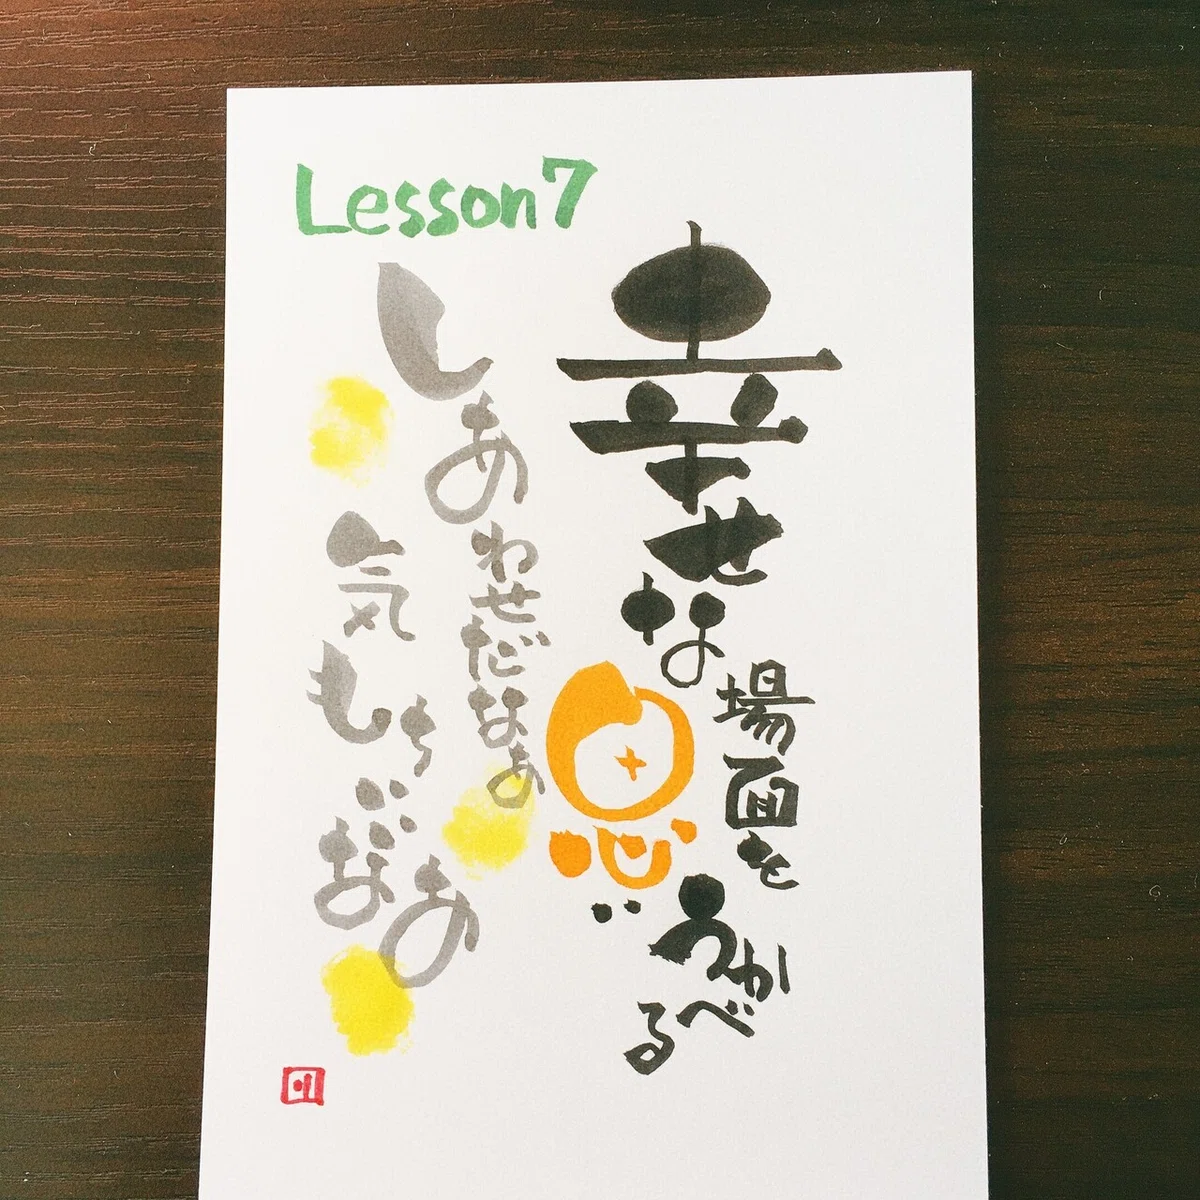 Lesson7
幸せな
場面を
思い
うかべる
しあわせだなぁ
気もちいいなあ